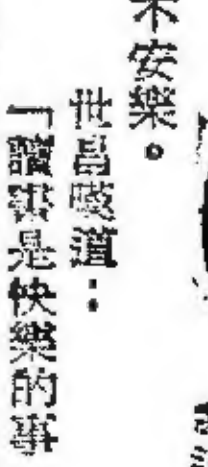 不安樂。
世昌嘆道：
「讀書是快樂的事